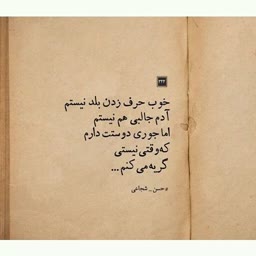 ۲۴۴
خوب حرف زدن بلد نیستم
آدم جالبی هم نیستم
اما جوری دوستت دارم
که وقتی نیستی
گریه می‌کنم...
#حسن_شجاعی